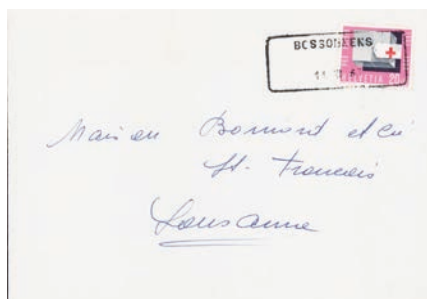 BOSSONNENS
HELVETIA 20
Maison Bornand et Cie
St. François
Lausanne